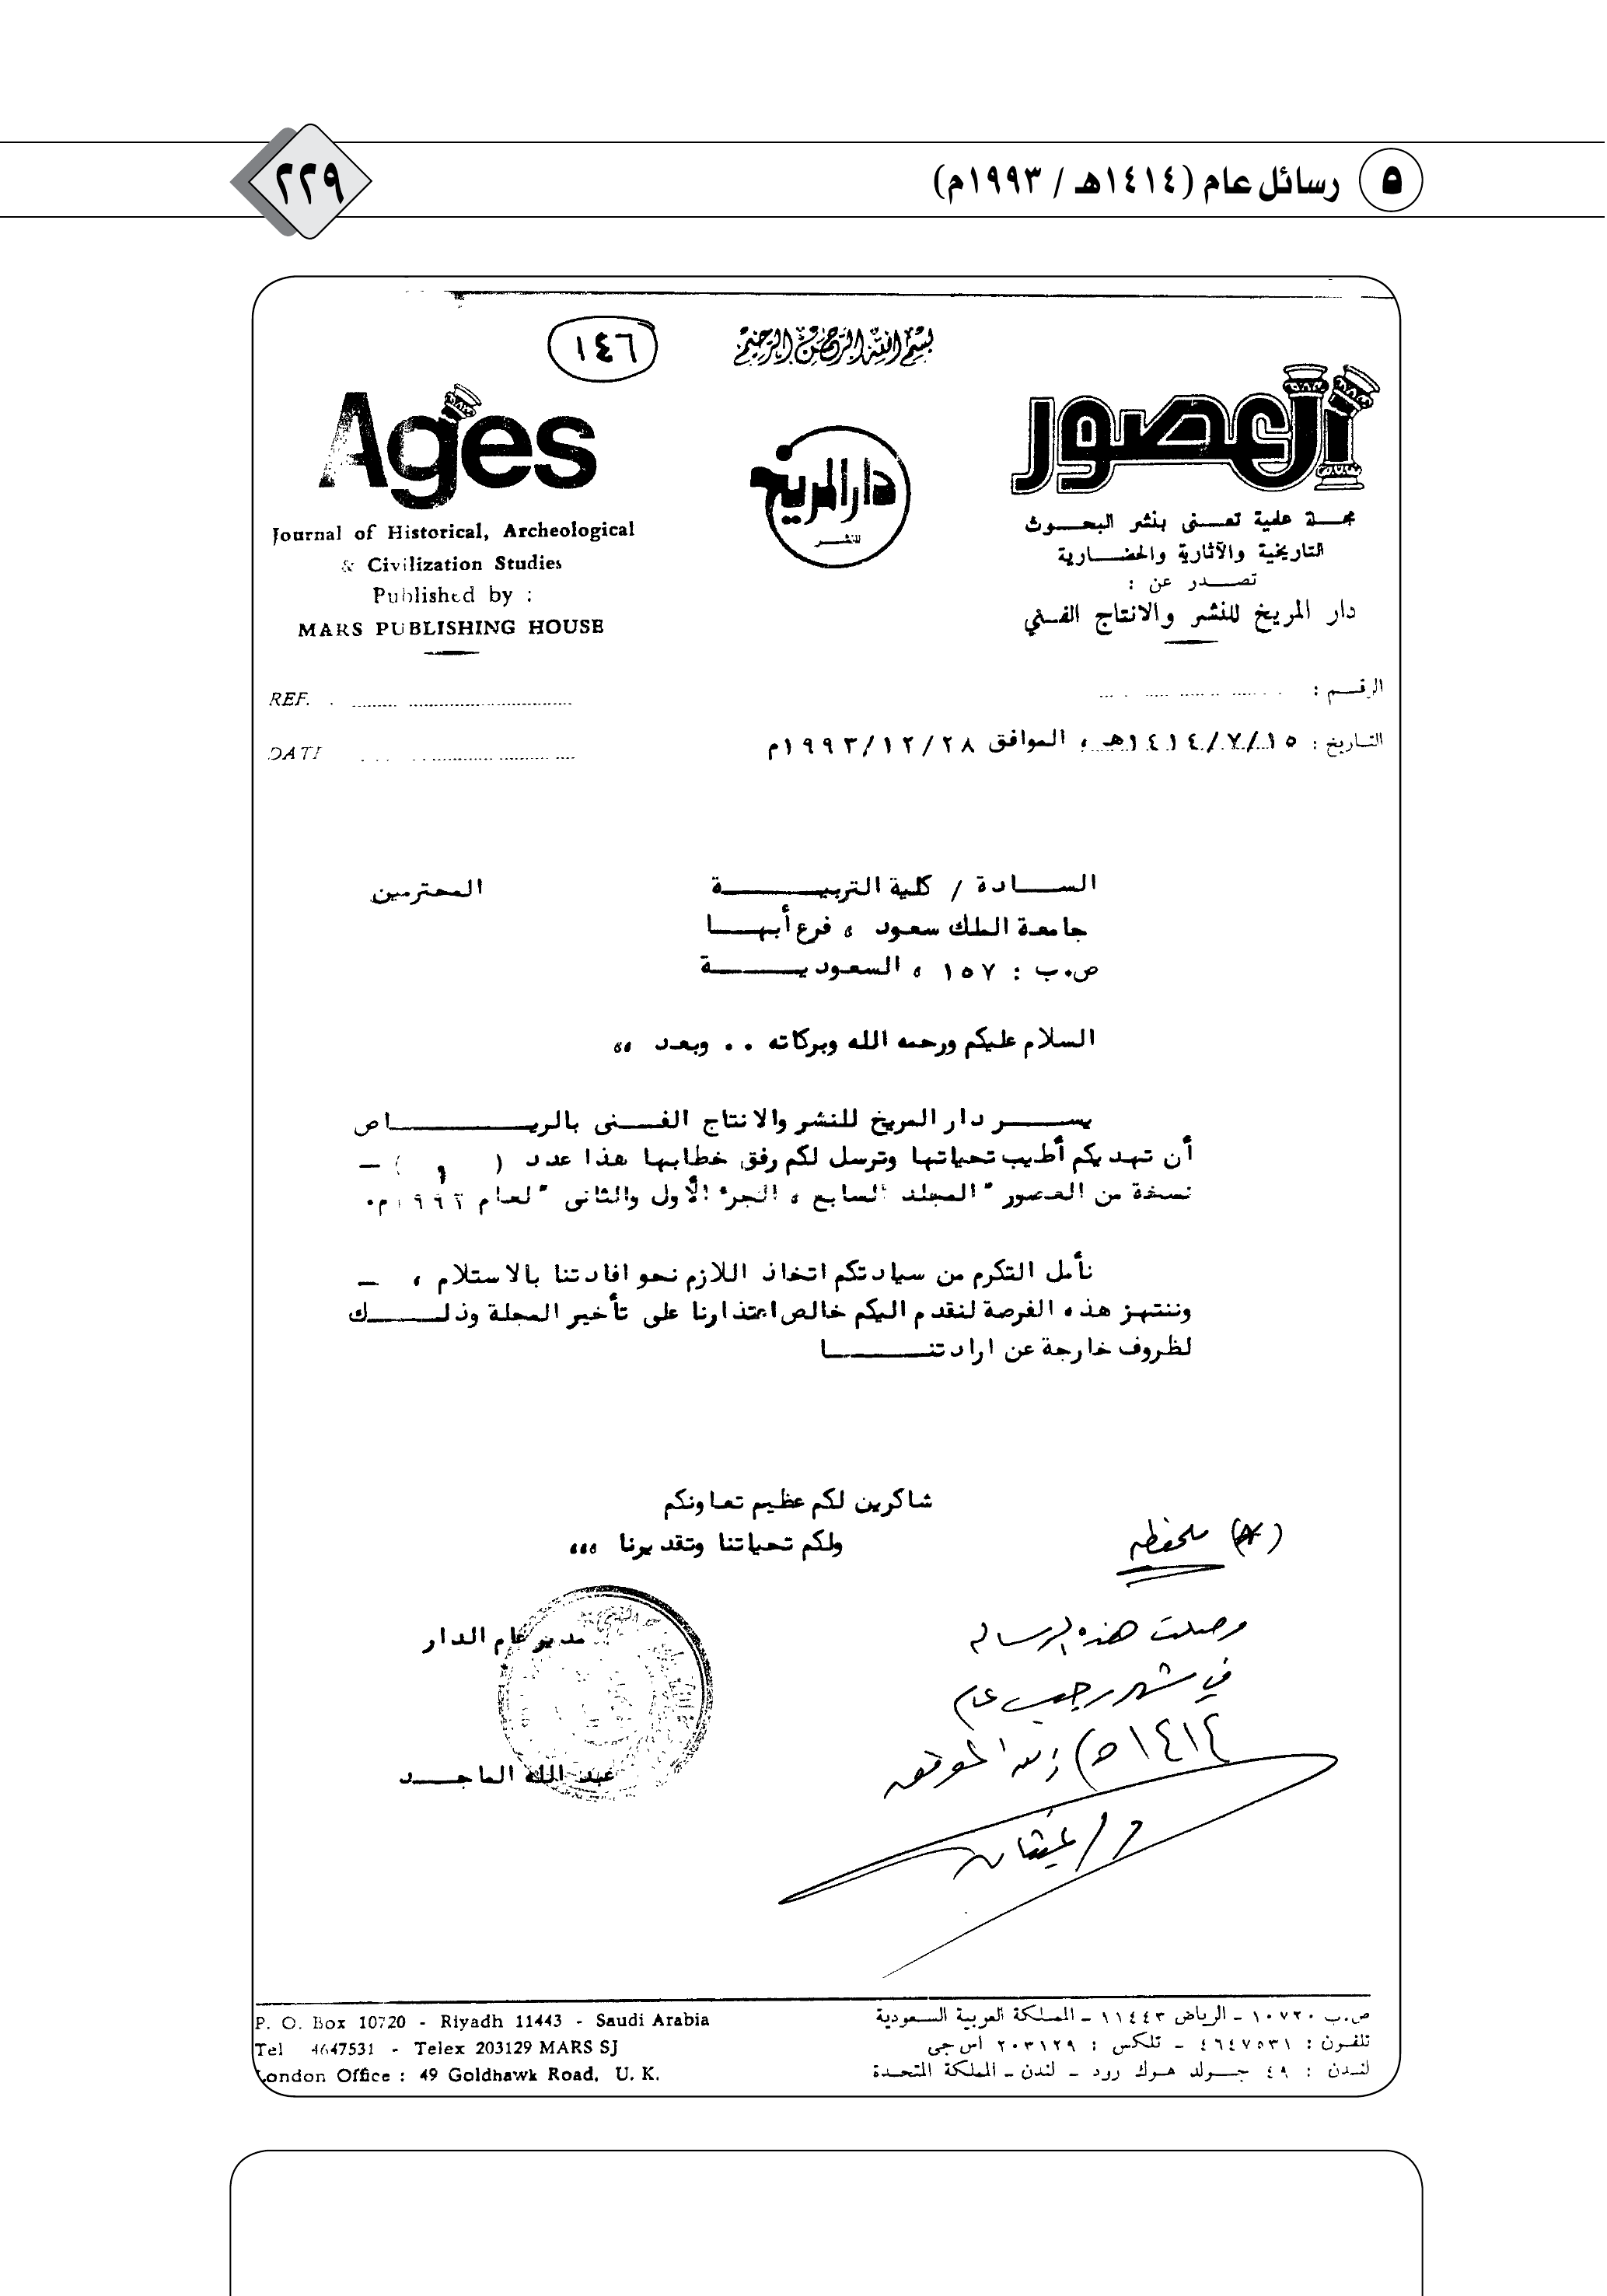 ٥ رسائل عام (١٤١٤هـ / ١٩٩٣م)
٢٢٩
١٤٦
بسم الله الرحمن الرحيم
العصور
مجلة علمية تعنى بنشر البحوث
التاريخية والآثارية والحضارية
تصدر عن :
دار المريخ للنشر والانتاج الفني
دار المريخ
للنشر
Ages
Journal of Historical, Archeological
& Civilization Studies
Published by :
MARS PUBLISHING HOUSE
الرقم :
التاريخ : ١٤١٤/٧/١٥هـ ، الموافق ١٩٩٣/١٢/٢٨م
REF.
DATE
السادة / كلية التربية المحترمين
جامعة الملك سعود ، فرع أبها
ص.ب : ١٥٧ ، السعودية
السلام عليكم ورحمه الله وبركاته . . وبعد ،،
يسر دار المريخ للنشر والانتاج الفني بالرياض
أن تهديكم أطيب تحياتها وترسل لكم رفق خطابها هذا عدد ( ) –
نسخة من العصور " المجلد السابع ، الجزء الأول والثانى " لعام ١٩٩٢م.
نأمل التكرم من سيادتكم اتخاذ اللازم نحو افادتنا بالاستلام ، –
وننتهز هذه الفرصة لنقدم اليكم خالص اعتذارنا على تأخير المجلة وذلك
لظروف خارجة عن ارادتنا
شاكرين لكم عظيم تعاونكم
ولكم تحياتنا وتقديرنا ،،،
مدير عام الدار
عبد الله الماجد
(*) ملحفظه
وصلت هذه الرساله
في شهر رجب عام
١٤١٤هـ) والله الموفق
د/ غيثان
ص.ب ١٠٧٢٠ - الرياض ١١٤٤٣ - المملكة العربية السعودية
تلفون : ٤٦٤٧٥٣١ - تلكس : ٢٠٣١٢٩ اس جى
لندن : ٤٩ جولد هوك رود - لندن - المملكة المتحدة
P. O. Box 10720 - Riyadh 11443 - Saudi Arabia
Tel 4647531 - Telex 203129 MARS SJ
London Office : 49 Goldhawk Road, U. K.